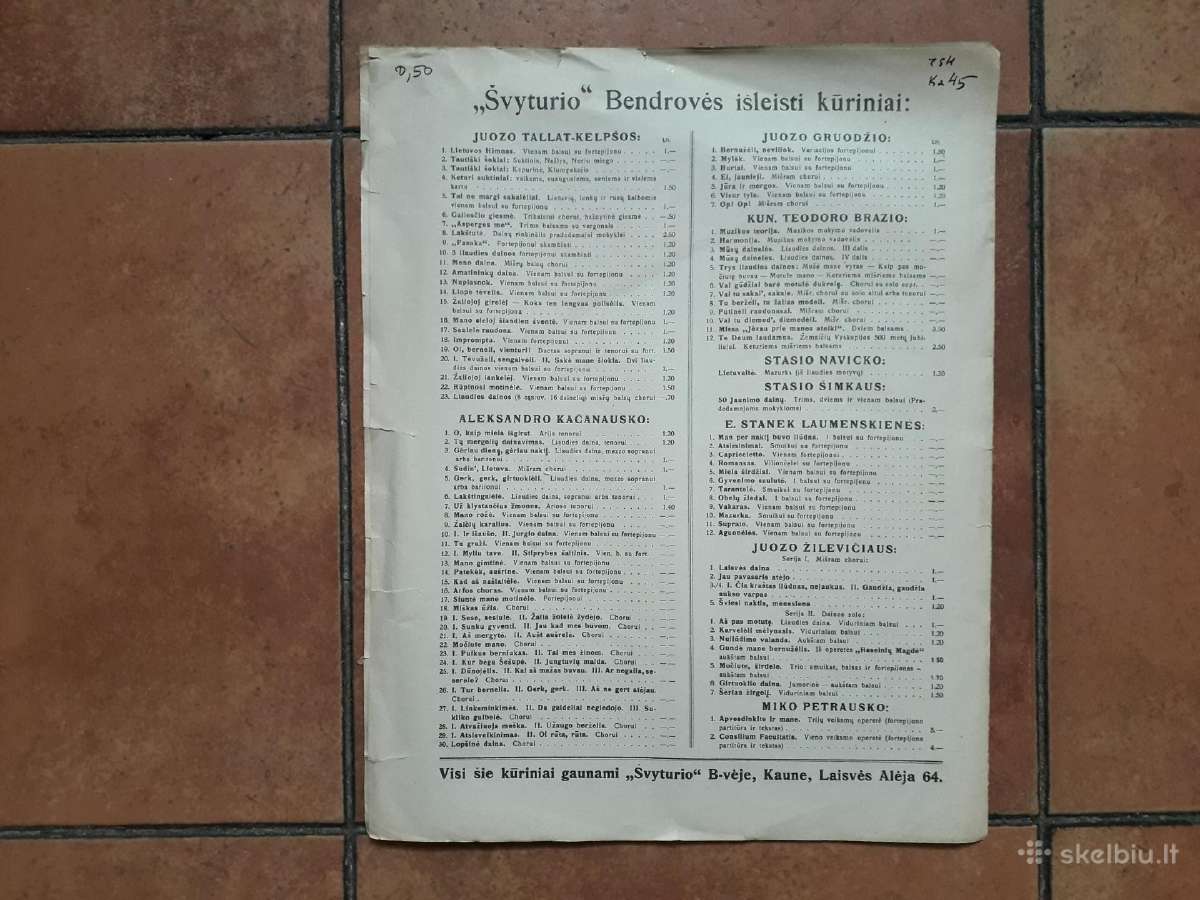 D,50
„Švyturio“ Bendrovės išleisti kūriniai:
JUOZO TALLAT-KELPŠOS:
1. Lietuvos Himnas. Vienam balsui su fortepijonu 1.—
2. Tautiški šokiai: Suktinis, Našlys, Noriu miego
3. Tautiški šokiai: Kepurinė, Klumpakojis
4. Keturi suktiniai: vaikams, suaugusiems, seniems ir visiems
kartu 1.50
5. Tai ne margi sakalėliai. Lietuvių, lenkų ir rusų kalbomis
vienam balsui su fortepijonu 1.—
6. Gailesčio giesmė. Tribalsiai chorui, bažnytinė giesmė —.50
7. „Asperges me“. Trims balsams su vargonais 1.—
8. Lakštutė. Dainų rinkinėlis pradedamajai mokyklai 2.50
9. „Pasaka“. Fortepijonui skambinti 1.20
10. 3 liaudies dainos fortepijonui skambinti 1.20
11. Meno daina. Mišrų balsų chorui 1.20
12. Amatininkų daina. Vienam balsui su fortepijonu 1.20
13. Naplasnok. Vienam balsui su fortepijonu 1.50
14. Liepė tėvelis. Vienam balsui su fortepijonu 1.20
15. Žaliojoj girelėj — Koks ten lengvas poilsėlis. Vienam
balsui su fortepijonu 1.20
16. Mano sieloj šiandien šventė. Vienam balsui su fortepijonu 1.—
17. Saulelė raudona. Vienam balsui su fortepijonu 1.—
18. Impromptu. Vienam fortepijonui 1.20
19. Oi, berneli, vienturti! Duetas sopranui ir tenorui su fort. 1.50
20. I. Tėvužėli, sengalvėli. II. Sakė mane šiokią. Dvi liau-
dies dainos vienam balsui su fortepijonu 2.—
21. Žaliojoj lankelėj. Vienam balsui su fortepijonu 1.20
22. Rūpinosi motinėlė. Vienam balsui su fortepijonu 1.50
23. Liaudies dainos (8 sąsiuv. 16 dainelių) mišrų balsų chorui —.70
ALEKSANDRO KAČANAUSKO:
1. O, kaip miela išgirst. Arija tenorui 1.20
2. Tų mergelių dainavimas. Liaudies daina, tenorui 1.20
3. Gėriau dieną, gėriau naktį. Liaudies daina, mezzo sopranui
arba baritonui 1.—
4. Sudie', Lietuva. Mišram chorui 1.—
5. Gerk, gerk, girtuoklėli. Liaudies daina, mezzo sopranui
arba baritonui 1.—
6. Lakštingalėlė. Liaudies daina, sopranui arba tenorui 1.—
7. Už klystančius žmones. Arioso tenorui 1.40
8. Mano rožė. Vienam balsui su fortepijonu
9. Žalčių karalius. Vienam balsui su fortepijonu
10. I. Ir išaušo. II. Jurgio daina. Vienam balsui su fortepijonu
11. Tu graži. Vienam balsui su fortepijonu
12. I. Myliu tave. II. Stiprybės šaltinis. Vien. b. su fort.
13. Mano gimtinė. Vienam balsui su fortepijonu
14. Patekėk, aušrine. Vienam balsui su fortepijonu
15. Kad aš našlaitėlė. Vienam balsui su fortepijonu
16. Arfos choras. Vienam balsui su fortepijonu
17. Siuntė mane motinėlė. Fortepijonui
18. Miškas ūžia. Chorui
19. I. Sesė, seselė. II. Žalia žolelė žydėjo. Chorui
20. I. Sunku gyventi. II. Jau kad mes buvom. Chorui
21. I. Aš mergytė. II. Aušt aušrelė. Chorui
22. Močiutė mano. Chorui
23. I. Puikus berniukas. II. Tai mes žinom. Chorui
24. I. Kur bėga Šešupė. II. Jungtuvių malda. Chorui
25. I. Dūnojėlis. II. Kai aš mažas buvau. III. Ar negaila, se-
serėle? Chorui
26. I. Tur bernelis. II. Gerk, gerk. III. Aš ne gert atėjau.
Chorui
27. I. Linksminkimės. II. Du gaideliai negiedojo. III. Su-
kliko gulbelė. Chorui
28. I. Atvažiuoja meška. II. Užaugo berželis. Chorui
29. I. Atsisveikinimas. II. Oi rūta, rūta. Chorui
30. Lopšinė daina. Chorui
Ka 45
JUOZO GRUODŽIO:
1. Bernužėli, nevilIok. Variacijos fortepijonui 1.50
2. Mylėk. Vienam balsui su fortepijonu 1.—
3. Burtai. Vienam balsui su fortepijonu 1.—
4. Ei, jaunieji. Mišram chorui 1.—
5. Jūra ir mergos. Vienam balsui su fortepijonu 1.20
6. Visur tyla. Vienam balsui su fortepijonu 1.20
7. Op! Op! Mišram chorui 1.—
KUN. TEODORO BRAZIO:
1. Muzikos teorija. Muzikos mokymo vadovėlis 1.—
2. Harmonija. Muzikos mokymo vadovėlis
3. Mūsų dainelės. Liaudies dainos. III dalis
4. Mūsų dainelės. Liaudies dainos. IV dalis
5. Trys liaudies dainos: Mušė mane vyras — Kaip pas mo-
čiutę buvau — Motule mano — Keturiems mišriems balsams
6. Vai gūdžiai barė motulė dukrelę. Chorui su solo sopr.
7. Vai tu sakai', sakale. Mišr. chorui su solo altui arba tenorui
8. Tu berželi, tu žalias medeli. Mišr. chorui
9. Putinėli raudonasai. Mišram chorui
10. Vai tu diemed', diemedėli. Mišr. chorui
11. Missa „Jėzau prie manęs ateiki“. Dviem balsams 3.50
12. Te Deum laudamus. Žemaičių Vyskupijos 500 metų jubi-
liejui. Keturiems mišriems balsams 2.50
STASIO NAVICKO:
Lietuvaitė. Mazurka (iš liaudies motyvų) 1.20
STASIO ŠIMKAUS:
50 Jaunimo dainų. Trims, dviems ir vienam balsui (Pra-
dedamajoms mokykloms) 2.—
E. STANEK LAUMENSKIENĖS:
1. Man per naktį buvo liūdna. 1 balsui su fortepijonu
2. Atsiminimai. Smuikui su fortepijonu
3. Capriccietto. Vienam fortepijonui
4. Romansas. Violončelei su fortepijonu
5. Miela širdžiai. Vienam balsui su fortepijonu
6. Gyvenimo saulutė. 1 balsui su fortepijonu
7. Tarantelė. Smuikui su fortepijonu
8. Obelų žiedai. 1 balsui su fortepijonu
9. Vakaras. Vienam balsui su fortepijonu
10. Mazurka. Smuikui su fortepijonu
11. Suprato. Vienam balsui su fortepijonu
12. Aguonėlės. Vienam balsui su fortepijonu
JUOZO ŽILEVIČIAUS:
Serija I. Mišram chorui:
1. Laisvės daina 1.—
2. Jau pavasaris atėjo 1.—
3./4. I. Čia kraštas liūdnas, nejaukus. II. Gaudžia, gaudžia
aukso varpas 1.—
5. Šviesi naktis, mėnesiena 1.20
Serija II. Dainos solo:
1. Aš pas motutę. Liaudies daina. Viduriniam balsui 1.—
2. Karvelėli mėlynasis. Viduriniam balsui 1.20
3. Nuliūdimo valanda. Aukštam balsui 1.20
4. Gundė mane bernužėlis. Iš operetės „Raseinių Magdė“
aukštam balsui 1.50
5. Močiute, širdele. Trio: smuikas, balsas ir fortepijonas —
aukštam balsui 1.70
6. Girtuoklio daina. Jumorinė — aukštam balsui 1.20
7. Šėriau žirgelį. Viduriniam balsui 1.50
MIKO PETRAUSKO:
1. Apvesdinkite ir mane. Trijų veiksmų operetė (fortepijono
partitūra ir tekstas) 5.—
2. Consilium Facultatis. Vieno veiksmo operetė (fortepijono
partitūra ir tekstas) 4.—
Visi šie kūriniai gaunami „Švyturio“ B-vėje, Kaune, Laisvės Alėja 64.
skelbiu.lt